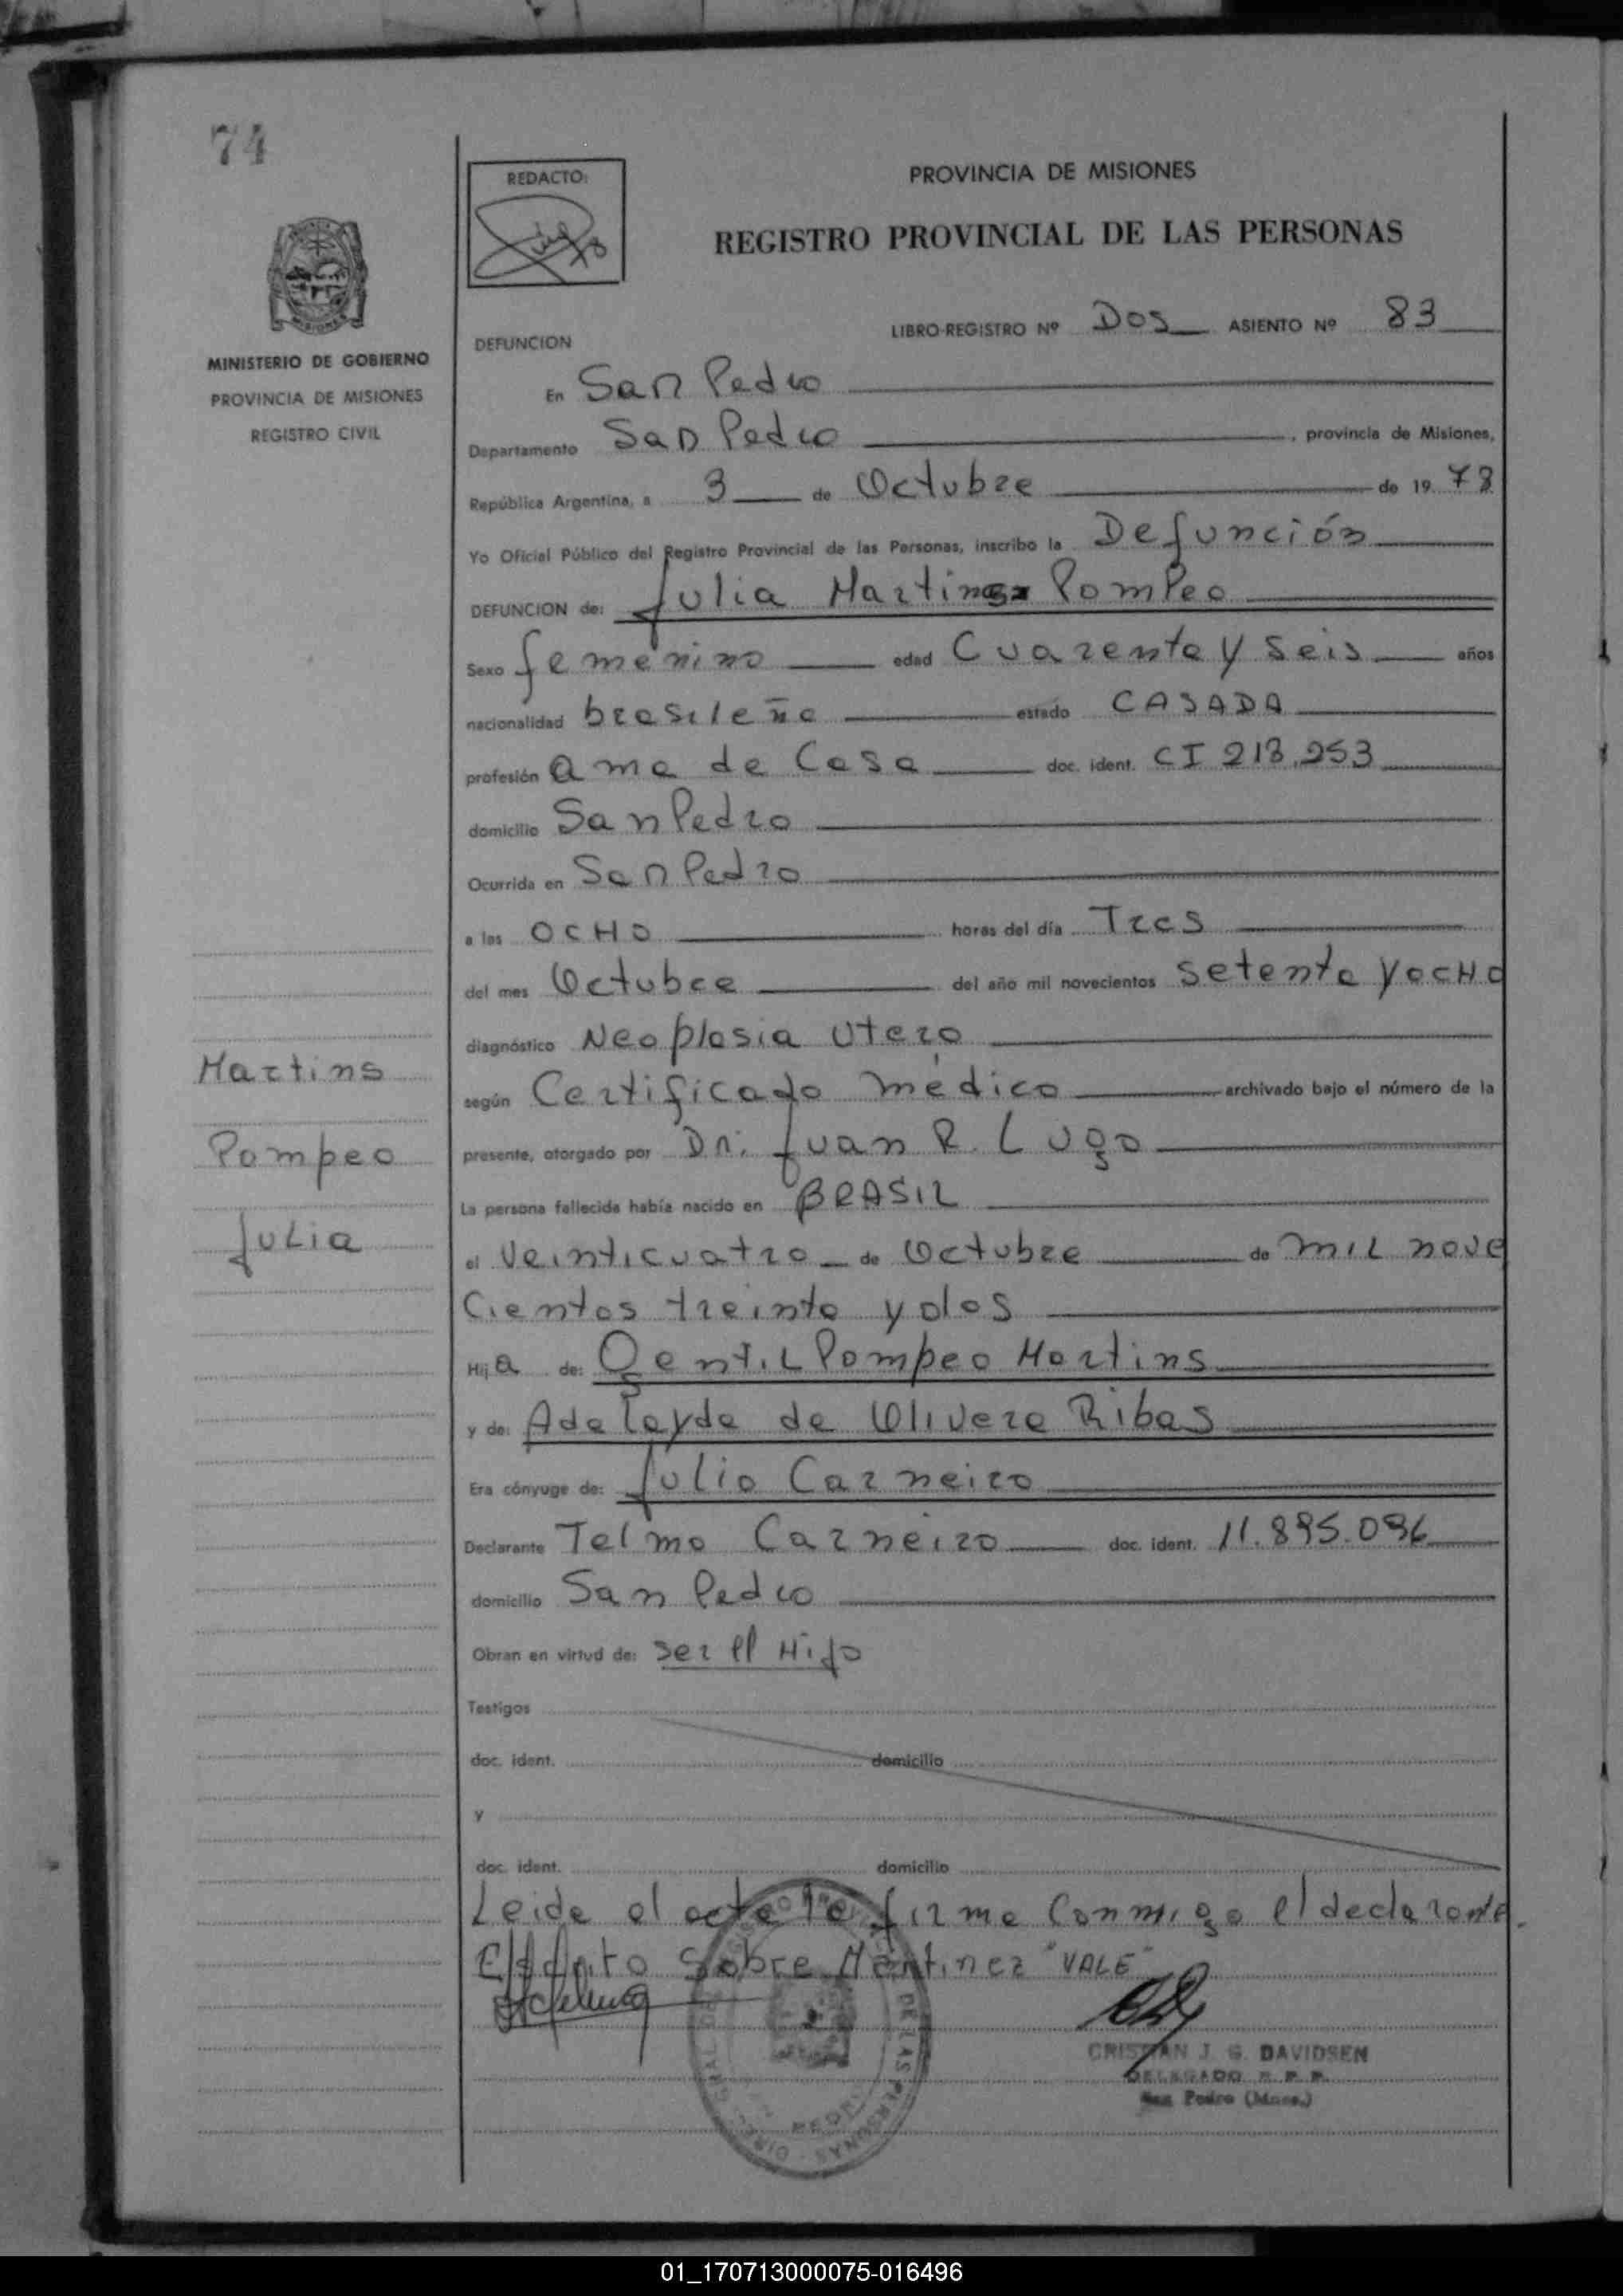 74
REDACTO:
PROVINCIA DE MISIONES
REGISTRO PROVINCIAL DE LAS PERSONAS
MISIONES
MINISTERIO DE GOBIERNO
PROVINCIA DE MISIONES
REGISTRO CIVIL
LIBRO-REGISTRO Nº Dos ASIENTO Nº 83
DEFUNCION
En San Pedro
Departamento San Pedro , provincia de Misiones,
República Argentina, a 3 de Octubre de 19 78
Yo Oficial Público del Registro Provincial de las Personas, inscribo la Defunción
DEFUNCION de: Julia Martinez Pompeo
Sexo femenino edad Cuarenta y seis años
nacionalidad brasileña estado CASADA
profesión ama de Casa doc. ident. CI 213.253
domicilio San Pedro
Ocurrida en San Pedro
a las OCHO horas del día Tres
del mes Octubre del año mil novecientos setenta y ocHo
diagnóstico Neoplasia Utero
según Certificado médico archivado bajo el número de la
presente, otorgado por Dr. Juan R. Lugo
La persona fallecida había nacido en BRASIL
el Veinticuatro de Octubre de MIL nove
Cientos treinta y dos
Hija de: Gentil Pompeo Martins
y de: Adelayde de Olivera Ribas
Era cónyuge de: Julio Carneiro
Declarante Telmo Carneiro doc. ident. 11.895.096
domicilio San Pedro
Obran en virtud de: ser el Hijo
Testigos
doc. ident. domicilio
y
doc. ident. domicilio
Leida el acta la firma Conmigo el declarante.
Sobre Martinez "VALE"
Martins
Pompeo
Julia
CRISTIAN J. G. DAVIDSEN
DELEGADO R. P. P.
San Pedro (Mnes.)
DE LAS PERSONAS
01_170713000075-016496